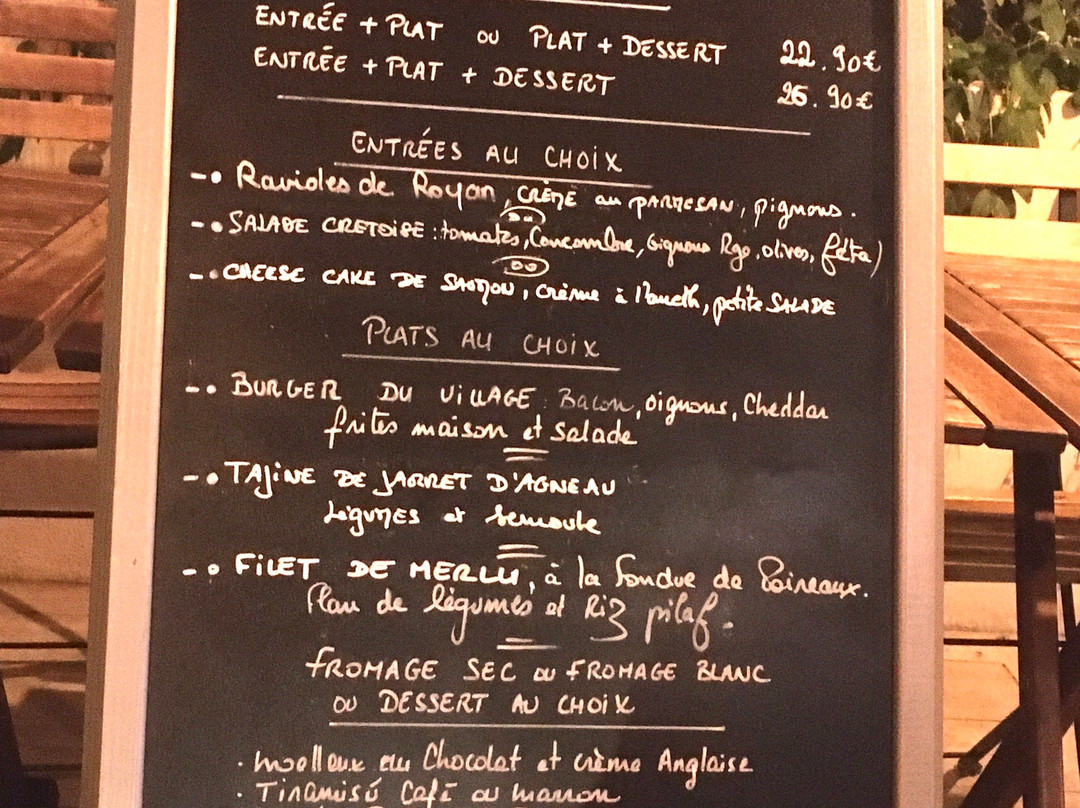 ENTRÉE + PLAT OU PLAT + DESSERT 22.90€
ENTRÉE + PLAT + DESSERT 26.90€
ENTRÉES AU CHOIX
-• Ravioles de Royan, CRÈME au PARMESAN, pignons.
-• SALADE CRETOISE : tomates, Concombre, oignons Rge, olives, feta)
-• CHEESE CAKE DE SAUMON, crème à l'aneth, petite SALADE
PLATS AU CHOIX
-• BURGER DU VILLAGE : Bacon, oignons, Cheddar
frites maison et Salade
-• TAJINE DE JARRET D'AGNEAU
Légumes et Semoule
-• FILET DE MERLU, à la fondue de Poireaux.
Flan de légumes et Riz pilaf.
FROMAGE SEC ou FROMAGE BLANC
OU DESSERT AU CHOIX
• Moelleux au Chocolat et crème Anglaise
• Tiramisú Café ou marron